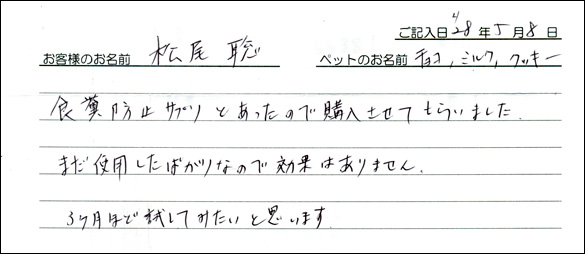 ご記入日 28年5月8日
お客様のお名前 松尾 聡 ペットのお名前 チョコ,ミルク,クッキー
食糞防止サプリとあったので購入させてもらいました.
まだ使用したばかりなので効果はありません.
3ヶ月ほど試してみたいと思います.